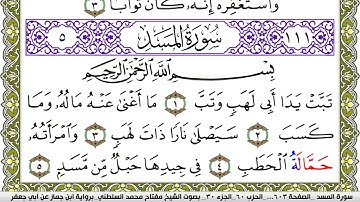 وَاسْتَغْفِرْهُ إِنَّهُۥ كَانَ تَوَّابًا ٣
٥ سُورَةُ المَسَدِ ١١١
بِسْمِ اللَّهِ الرَّحْمَٰنِ الرَّحِيمِ
تَبَّتْ يَدَا أَبِي لَهَبٍ وَتَبَّ ١ مَا أَغْنَىٰ عَنْهُ مَالُهُۥ وَمَا
كَسَبَ ٢ سَيَصْلَىٰ نَارًا ذَاتَ لَهَبٍ ٣ وَامْرَأَتُهُۥ
حَمَّالَةُ الْحَطَبِ ٤ فِي جِيدِهَا حَبْلٌ مِّن مَّسَدٍ ٥
سورة المسد _ الصفحة ٦٠٣ ... الحزب ٦٠ _ الجزء ٣٠ _ بصوت الشيخ مفتاح محمد السلطني _ برواية ابن جماز عن أبي جعفر